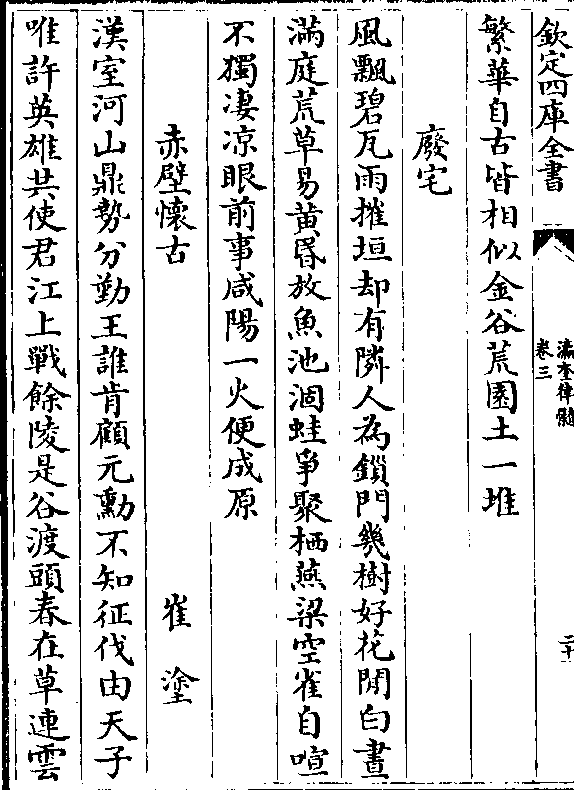 欽定四庫全書
瀛奎律髓
卷三
二十
繁華自古皆相似金谷荒園土一堆
廢宅
風飄碧瓦雨摧垣却有隣人為鎖門幾樹好花閒白晝
滿庭荒草易黄昏放魚池涸蛙爭聚栖燕梁空雀自喧
不獨凄凉眼前事咸陽一火便成原
赤壁懷古
崔塗
漢室河山鼎勢分勤王誰肯顧元勳不知征伐由天子
唯許英雄共使君江上戰餘陵是谷渡頭春在草連雲